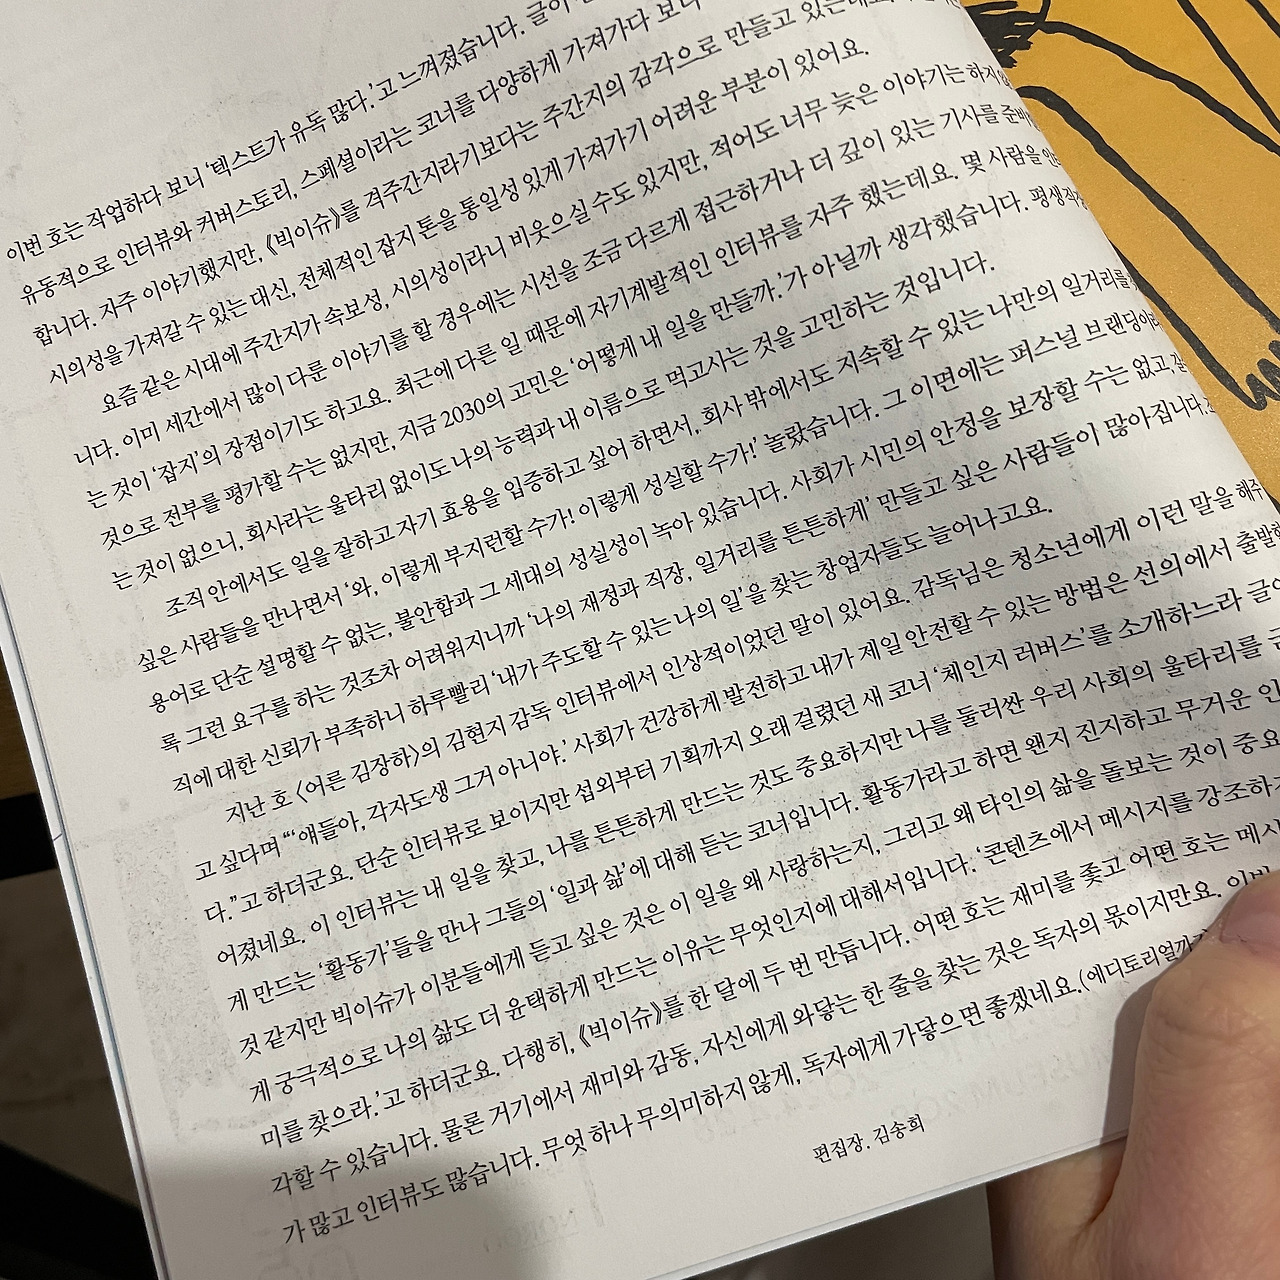 이번 호는 작업하다 보니 '텍스트가 유독 많다.'고 느껴졌습니다. 글이
유동적으로 인터뷰와 커버스토리, 스페셜이라는 코너를 다양하게 가져가다 보니
합니다. 자주 이야기했지만, 《빅이슈》를 격주간지라기보다는 주간지의 감각으로 만들고 있는데요,
시의성을 가져갈 수 있는 대신, 전체적인 잡지 톤을 통일성 있게 가져가기 어려운 부분이 있어요.
요즘 같은 시대에 주간지가 속보성, 시의성이라니 비웃으실 수도 있지만, 적어도 너무 늦은 이야기는 하지
니다. 이미 세간에서 많이 다룬 이야기를 할 경우에는 시선을 조금 다르게 접근하거나 더 깊이 있는 기사를
는 것이 '잡지'의 장점이기도 하고요. 최근에 다른 일 때문에 자기계발적인 인터뷰를 자주 했는데요. 몇 사람을
것으로 전부를 평가할 수는 없지만, 지금 2030의 고민은 '어떻게 내 일을 만들까.'가 아닐까 생각했습니다.
는 것이 없으니, 회사라는 울타리 없이도 나의 능력과 내 이름으로 먹고사는 것을 고민하는 것입니다.
조직 안에서도 일을 잘하고 자기 효용을 입증하고 싶어 하면서, 회사 밖에서도 지속할 수 있는 나만의 일거리를
싶은 사람들을 만나면서 '와, 이렇게 부지런할 수가! 이렇게 성실할 수가!' 놀랐습니다. 그 이면에는 퍼스널
용어로 단순 설명할 수 없는, 불안함과 그 세대의 성실성이 녹아 있습니다. 사회가 시민의 안정을 보장할 수는 없고,
록 그런 요구를 하는 것조차 어려워지니까 '나의 재정과 직장, 일거리를 튼튼하게' 만들고 싶은 사람들이 많아집니다.
직에 대한 신뢰가 부족하니 하루빨리 '내가 주도할 수 있는 나의 일'을 찾는 창업자들도 늘어나고요.
지난 호 〈어른 김장하〉의 김현지 감독 인터뷰에서 인상적이었던 말이 있어요. 감독님은 청소년에게 이런 말을 해주
고 싶다며 "'얘들아, 각자도생 그거 아니야.' 사회가 건강하게 발전하고 내가 제일 안전할 수 있는 방법은 선의에서
다."고 하더군요. 단순 인터뷰로 보이지만 섭외부터 기획까지 오래 걸렸던 새 코너 '체인지 러버스'를 소개하느라
어졌네요. 이 인터뷰는 내 일을 찾고, 나를 튼튼하게 만드는 것도 중요하지만 나를 둘러싼 우리 사회의 울타리를
게 만드는 '활동가'들을 만나 그들의 '일과 삶'에 대해 듣는 코너입니다. 활동가라고 하면 왠지 진지하고 무거운
것 같지만 빅이슈가 이분들에게 듣고 싶은 것은 이 일을 왜 사랑하는지, 그리고 왜 타인의 삶을 돌보는 것이
게 궁극적으로 나의 삶도 더 윤택하게 만드는 이유는 무엇인지에 대해서입니다. '콘텐츠에서 메시지를
미를 찾으라.'고 하더군요. 다행히, 《빅이슈》를 한 달에 두 번 만듭니다. 어떤 호는 재미를 좇고 어떤 호는
각할 수 있습니다. 물론 거기에서 재미와 감동, 자신에게 와닿는 한 줄을 찾는 것은 독자의 몫이지만요.
가 많고 인터뷰도 많습니다. 무엇 하나 무의미하지 않게, 독자에게 가닿으면 좋겠네요.
편집장. 김송희